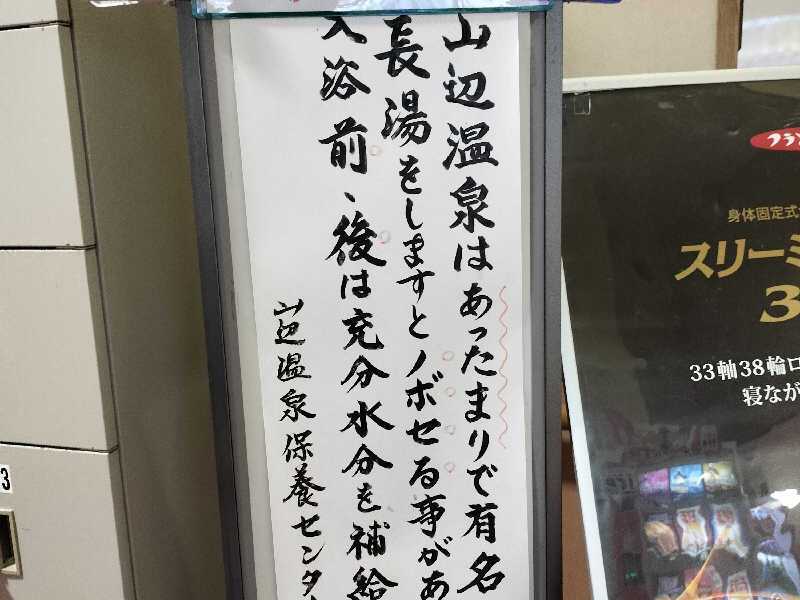 山辺温泉はあったまりで有名
長湯をしますとノボセる事があ
入浴前、後は充分水分を補給
山辺温泉保養センター
フラン
身体固定式
スリーミ
3
33軸38輪ロ
寝なが
3